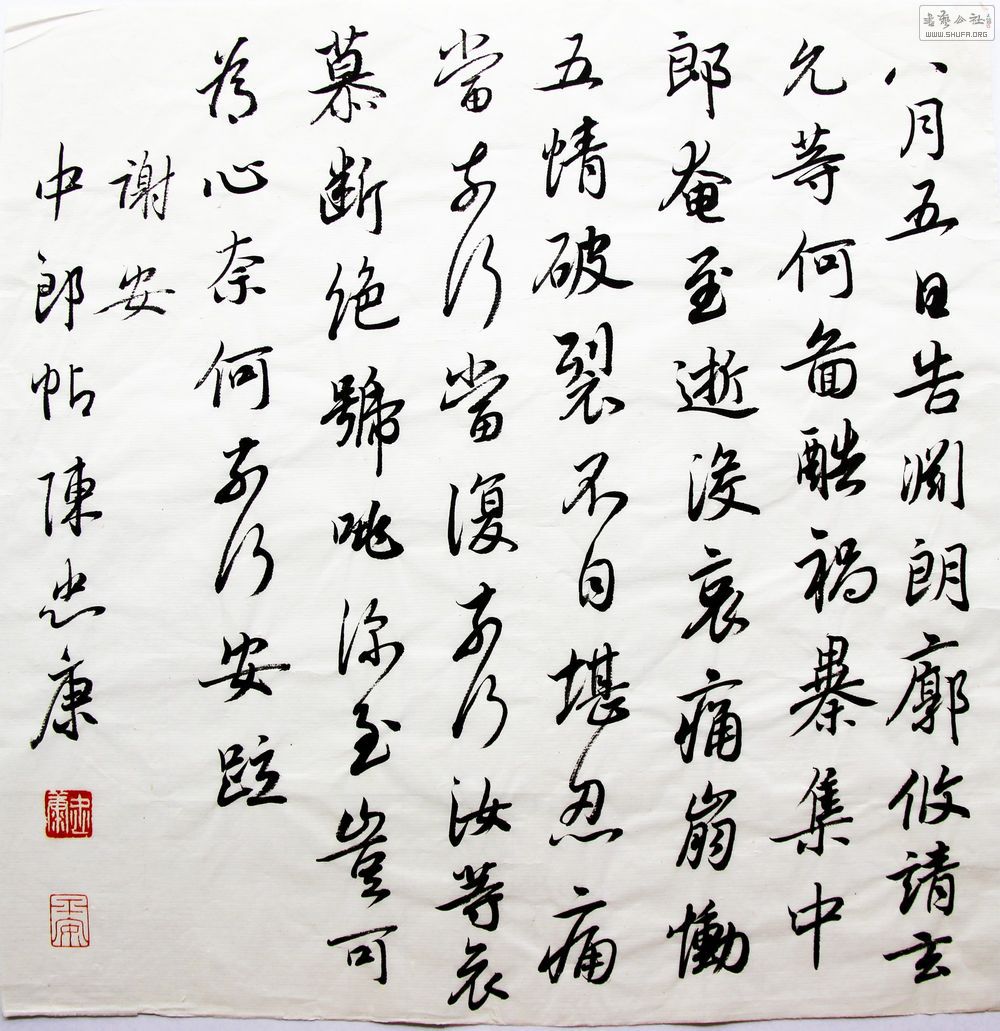 八月五日告淵朗廓攸請玄
允等何圖酷禍暴集中
郎奄至逝没哀痛崩慟
五情破裂不自堪忍痛
當奈何當復奈何汝等哀
慕斷絕號咷深至豈可
為心奈何奈何安疏
謝安
中郎帖陳忠康
忠康
平安
書藝公社
WWW.SHUFA.ORG